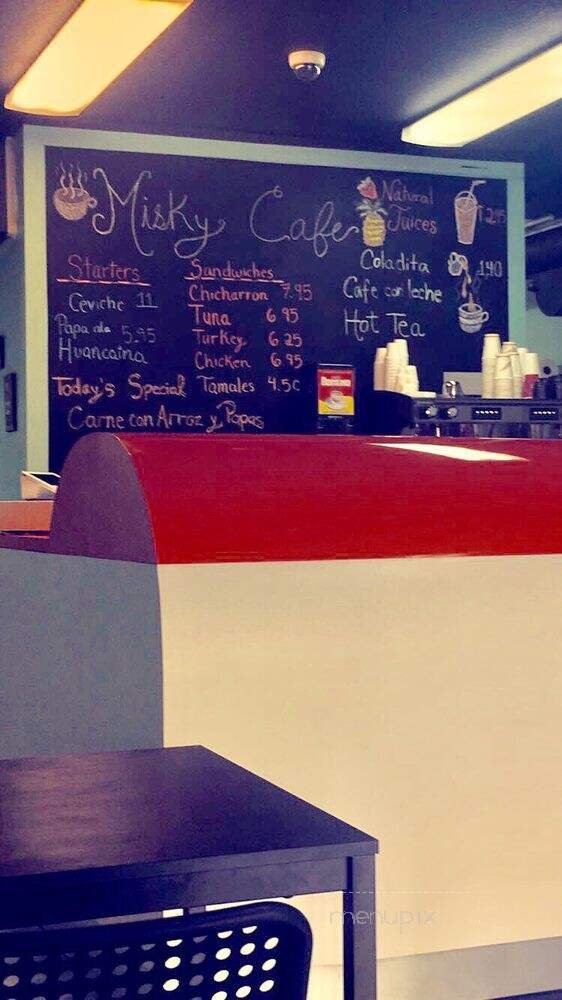 Misky Cafe
Starters
Ceviche 11
Papa ala 5.95
Huancaina
Today's Special
Carne con Arroz y Papas
Sandwiches
Chicharron 7.95
Tuna 6.95
Turkey 6.25
Chicken 6.95
Tamales 4.50
Natural
Juices
Coladita 1.40
Cafe con leche
Hot Tea
menupix